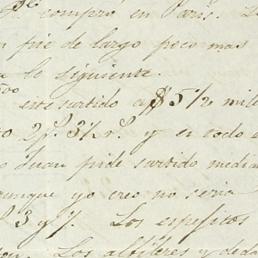 compró en Paris.
pie de largo poco mas
le siguiente.
este surtido a $5 1/2 mile
2 ps. 3 1/2 rs. y en codo
Juan pide surtido media
aunque yo creo no seria
3 y
Los espeficos
Los alfileres y deda